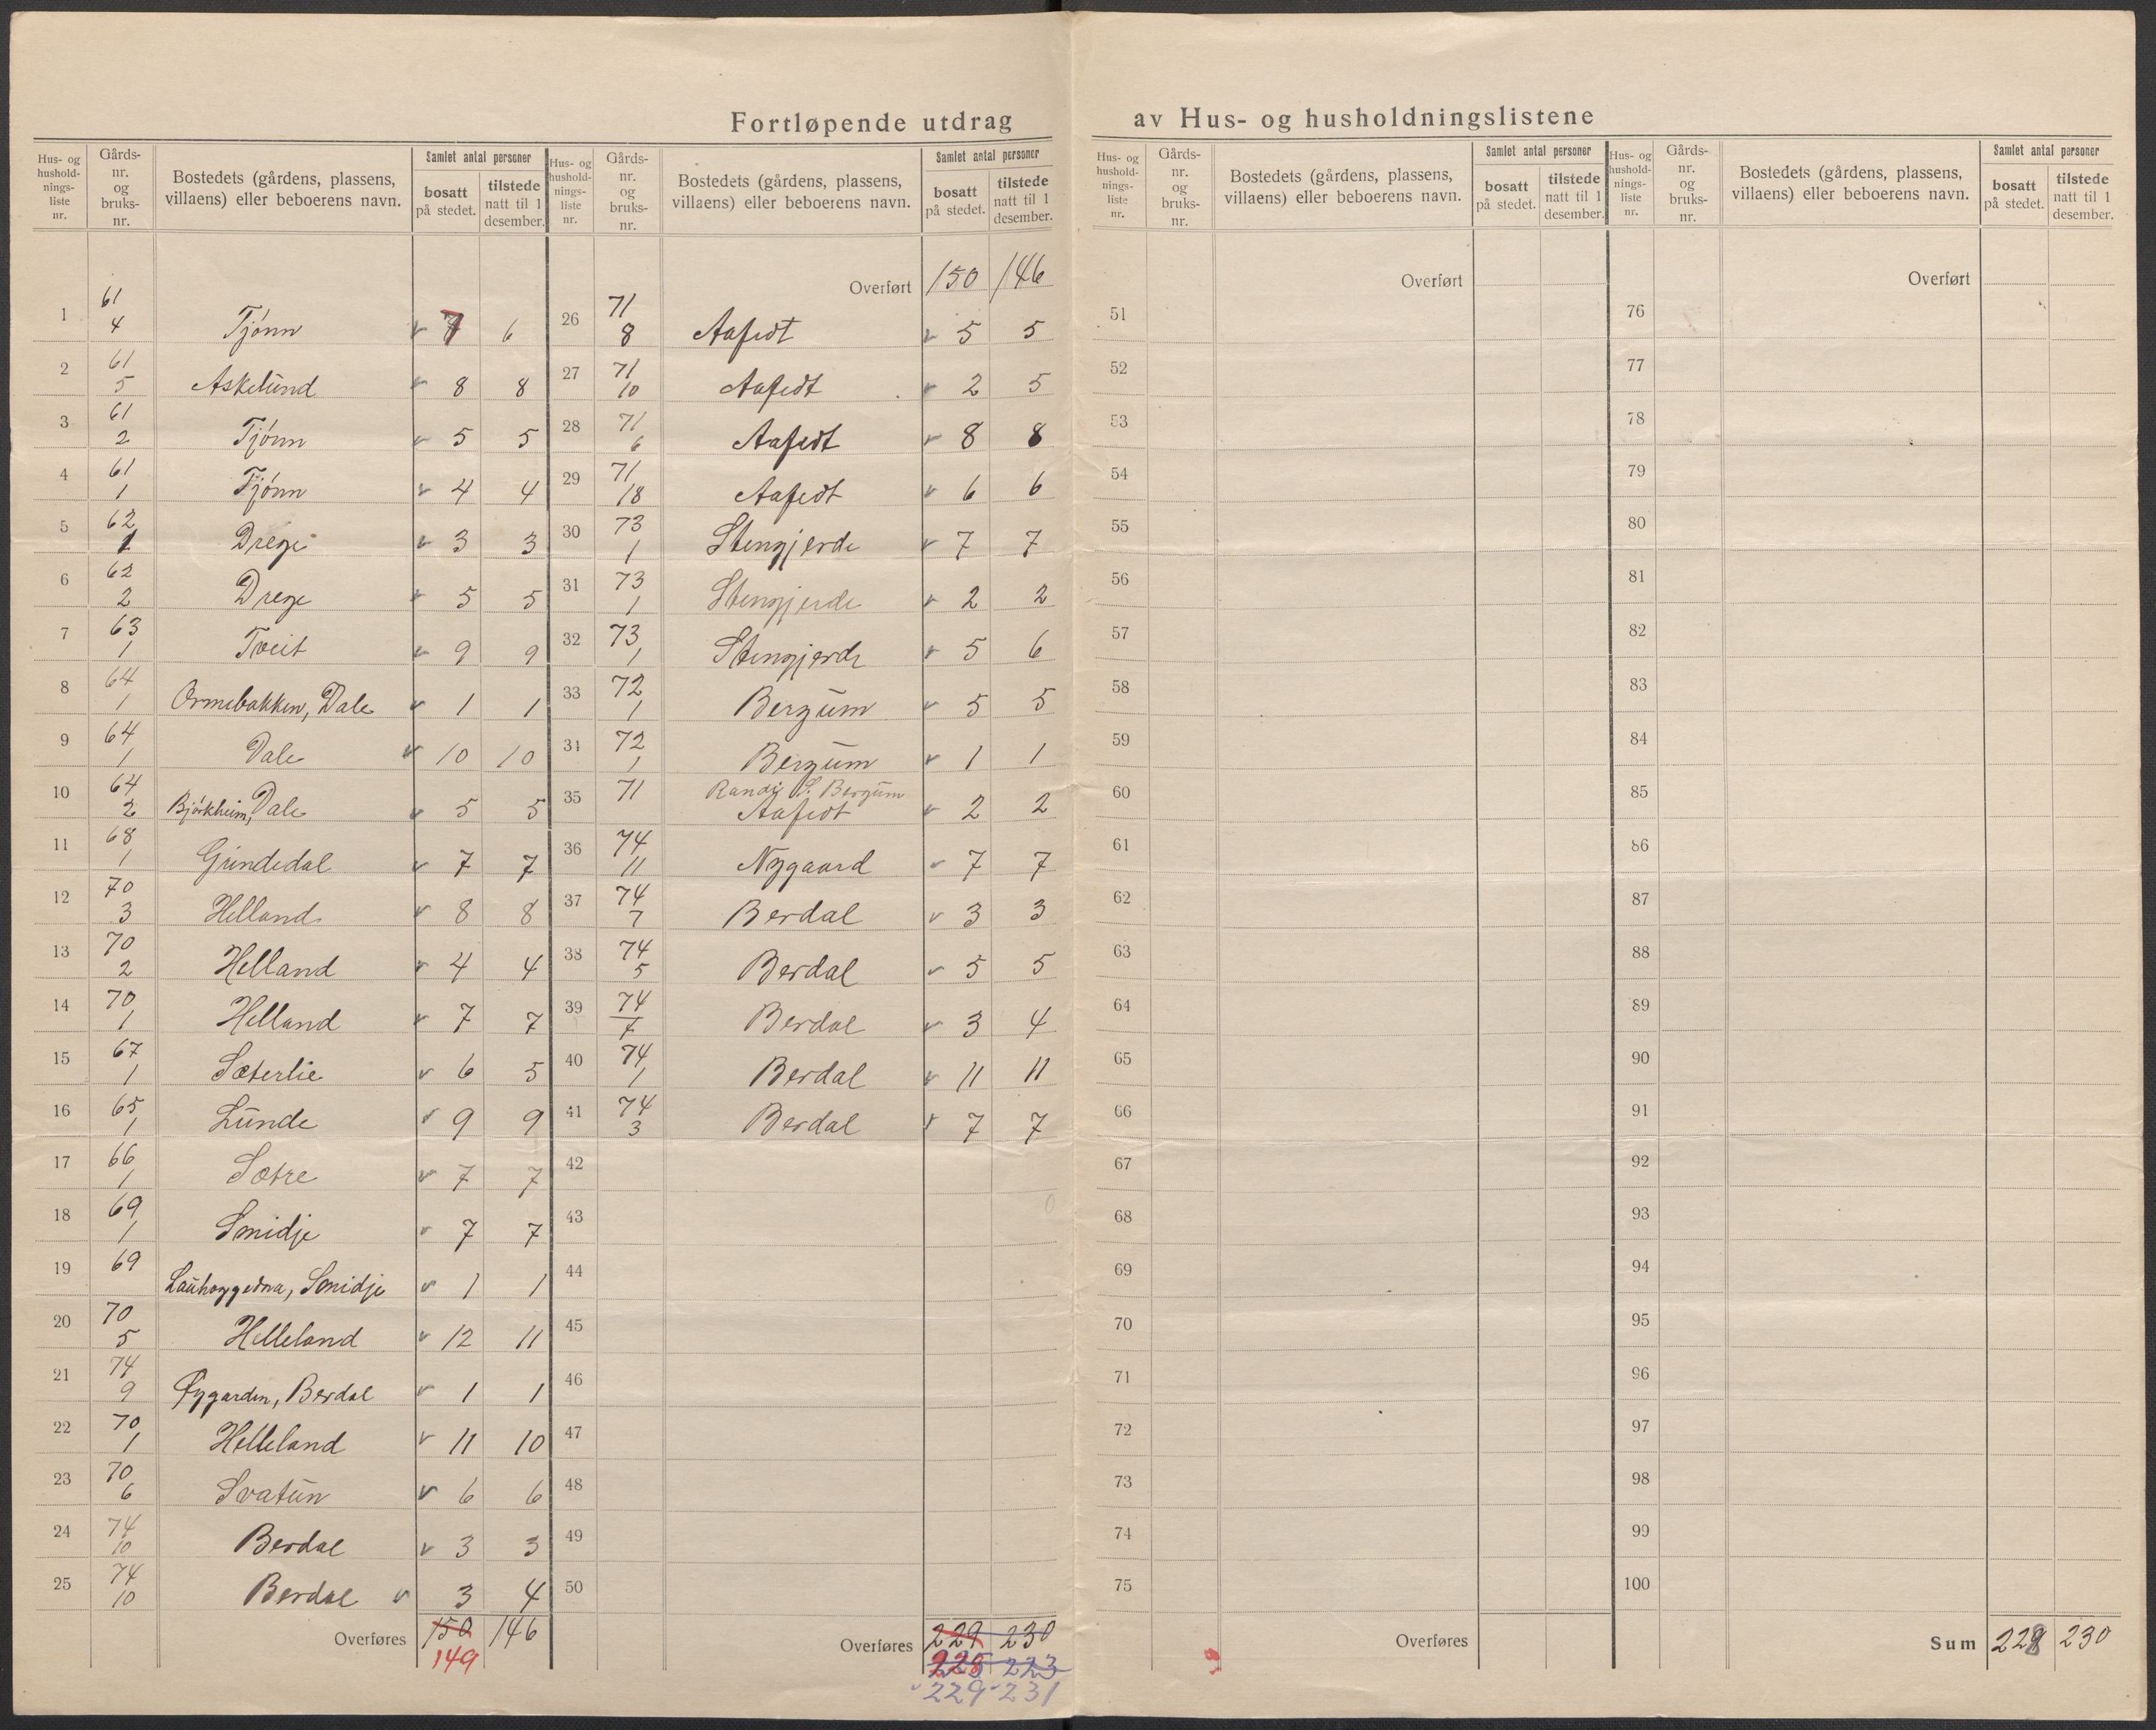 Fortløpende utdrag av Hus- og husholdningslistene
Hus- og husholdnings-liste nr. | Gårds-nr. og bruks-nr. | Bostedets (gårdens, plassens, villaens) eller beboerens navn. | Samlet antal personer | bosatt på stedet. | tilstede natt til 1 desember.
1 61 4 Tjønn 7 6
2 61 5 Askelund 8 8
3 61 2 Tjønn 5 5
4 61 1 Tjønn 4 4
5 62 1 Drege 3 3
6 62 2 Drege 5 5
7 63 1 Tveit 9 9
8 64 1 Ormebakken, Dale 1 1
9 64 1 Dale 10 10
10 64 2 Bjørkheim, Dale 5 5
11 68 1 Grindedal 7 7
12 70 3 Helland 8 8
13 70 2 Helland 4 4
14 70 1 Helland 7 7
15 67 1 Sæterlie 6 5
16 65 1 Lunde 9 9
17 66 1 Sætre 7 7
18 69 1 Smidje 7 7
19 69 Smidje 1 1
20 70 5 Helleland 12 11
21 74 9 Øygarden, Berdal 1 1
22 70 1 Helleland 11 10
23 70 6 Svatun 6 6
24 74 10 Berdal 3 3
25 74 10 Berdal 3 4
Overføres 150 146
149
Hus- og husholdnings-liste nr. | Gårds-nr. og bruks-nr. | Bostedets (gårdens, plassens, villaens) eller beboerens navn. | Samlet antal personer | bosatt på stedet. | tilstede natt til 1 desember.
Overført 150 146
26 71 8 Aafedt 5 5
27 71 10 Aafedt 2 5
28 71 6 Aafedt 8 8
29 71 18 Aafedt 6 6
30 73 1 Stengjerde 7 7
31 73 1 Stengjerde 2 2
32 73 1 Stengjerde 5 6
33 72 1 Bergum 5 5
34 72 1 Bergum 1 1
35 71 Randi S. Bergum
Aafedt 2 2
36 74 11 Nygaard 7 7
37 74 7 Berdal 3 3
38 74 5 Berdal 5 5
39 74 7 Berdal 3 4
40 74 1 Berdal 11 11
41 74 3 Berdal 7 7
42
43
44
45
46
47
48
49
50
Overføres 229 230
228 223
229 231
Hus- og husholdnings-liste nr. | Gårds-nr. og bruks-nr. | Bostedets (gårdens, plassens, villaens) eller beboerens navn. | Samlet antal personer | bosatt på stedet. | tilstede natt til 1 desember.
Overført
51
52
53
54
55
56
57
58
59
60
61
62
63
64
65
66
67
68
69
70
71
72
73
74
75
Overføres
Hus- og husholdnings-liste nr. | Gårds-nr. og bruks-nr. | Bostedets (gårdens, plassens, villaens) eller beboerens navn. | Samlet antal personer | bosatt på stedet. | tilstede natt til 1 desember.
Overført
76
77
78
79
80
81
82
83
84
85
86
87
88
89
90
91
92
93
94
95
96
97
98
99
100
Sum 228 230